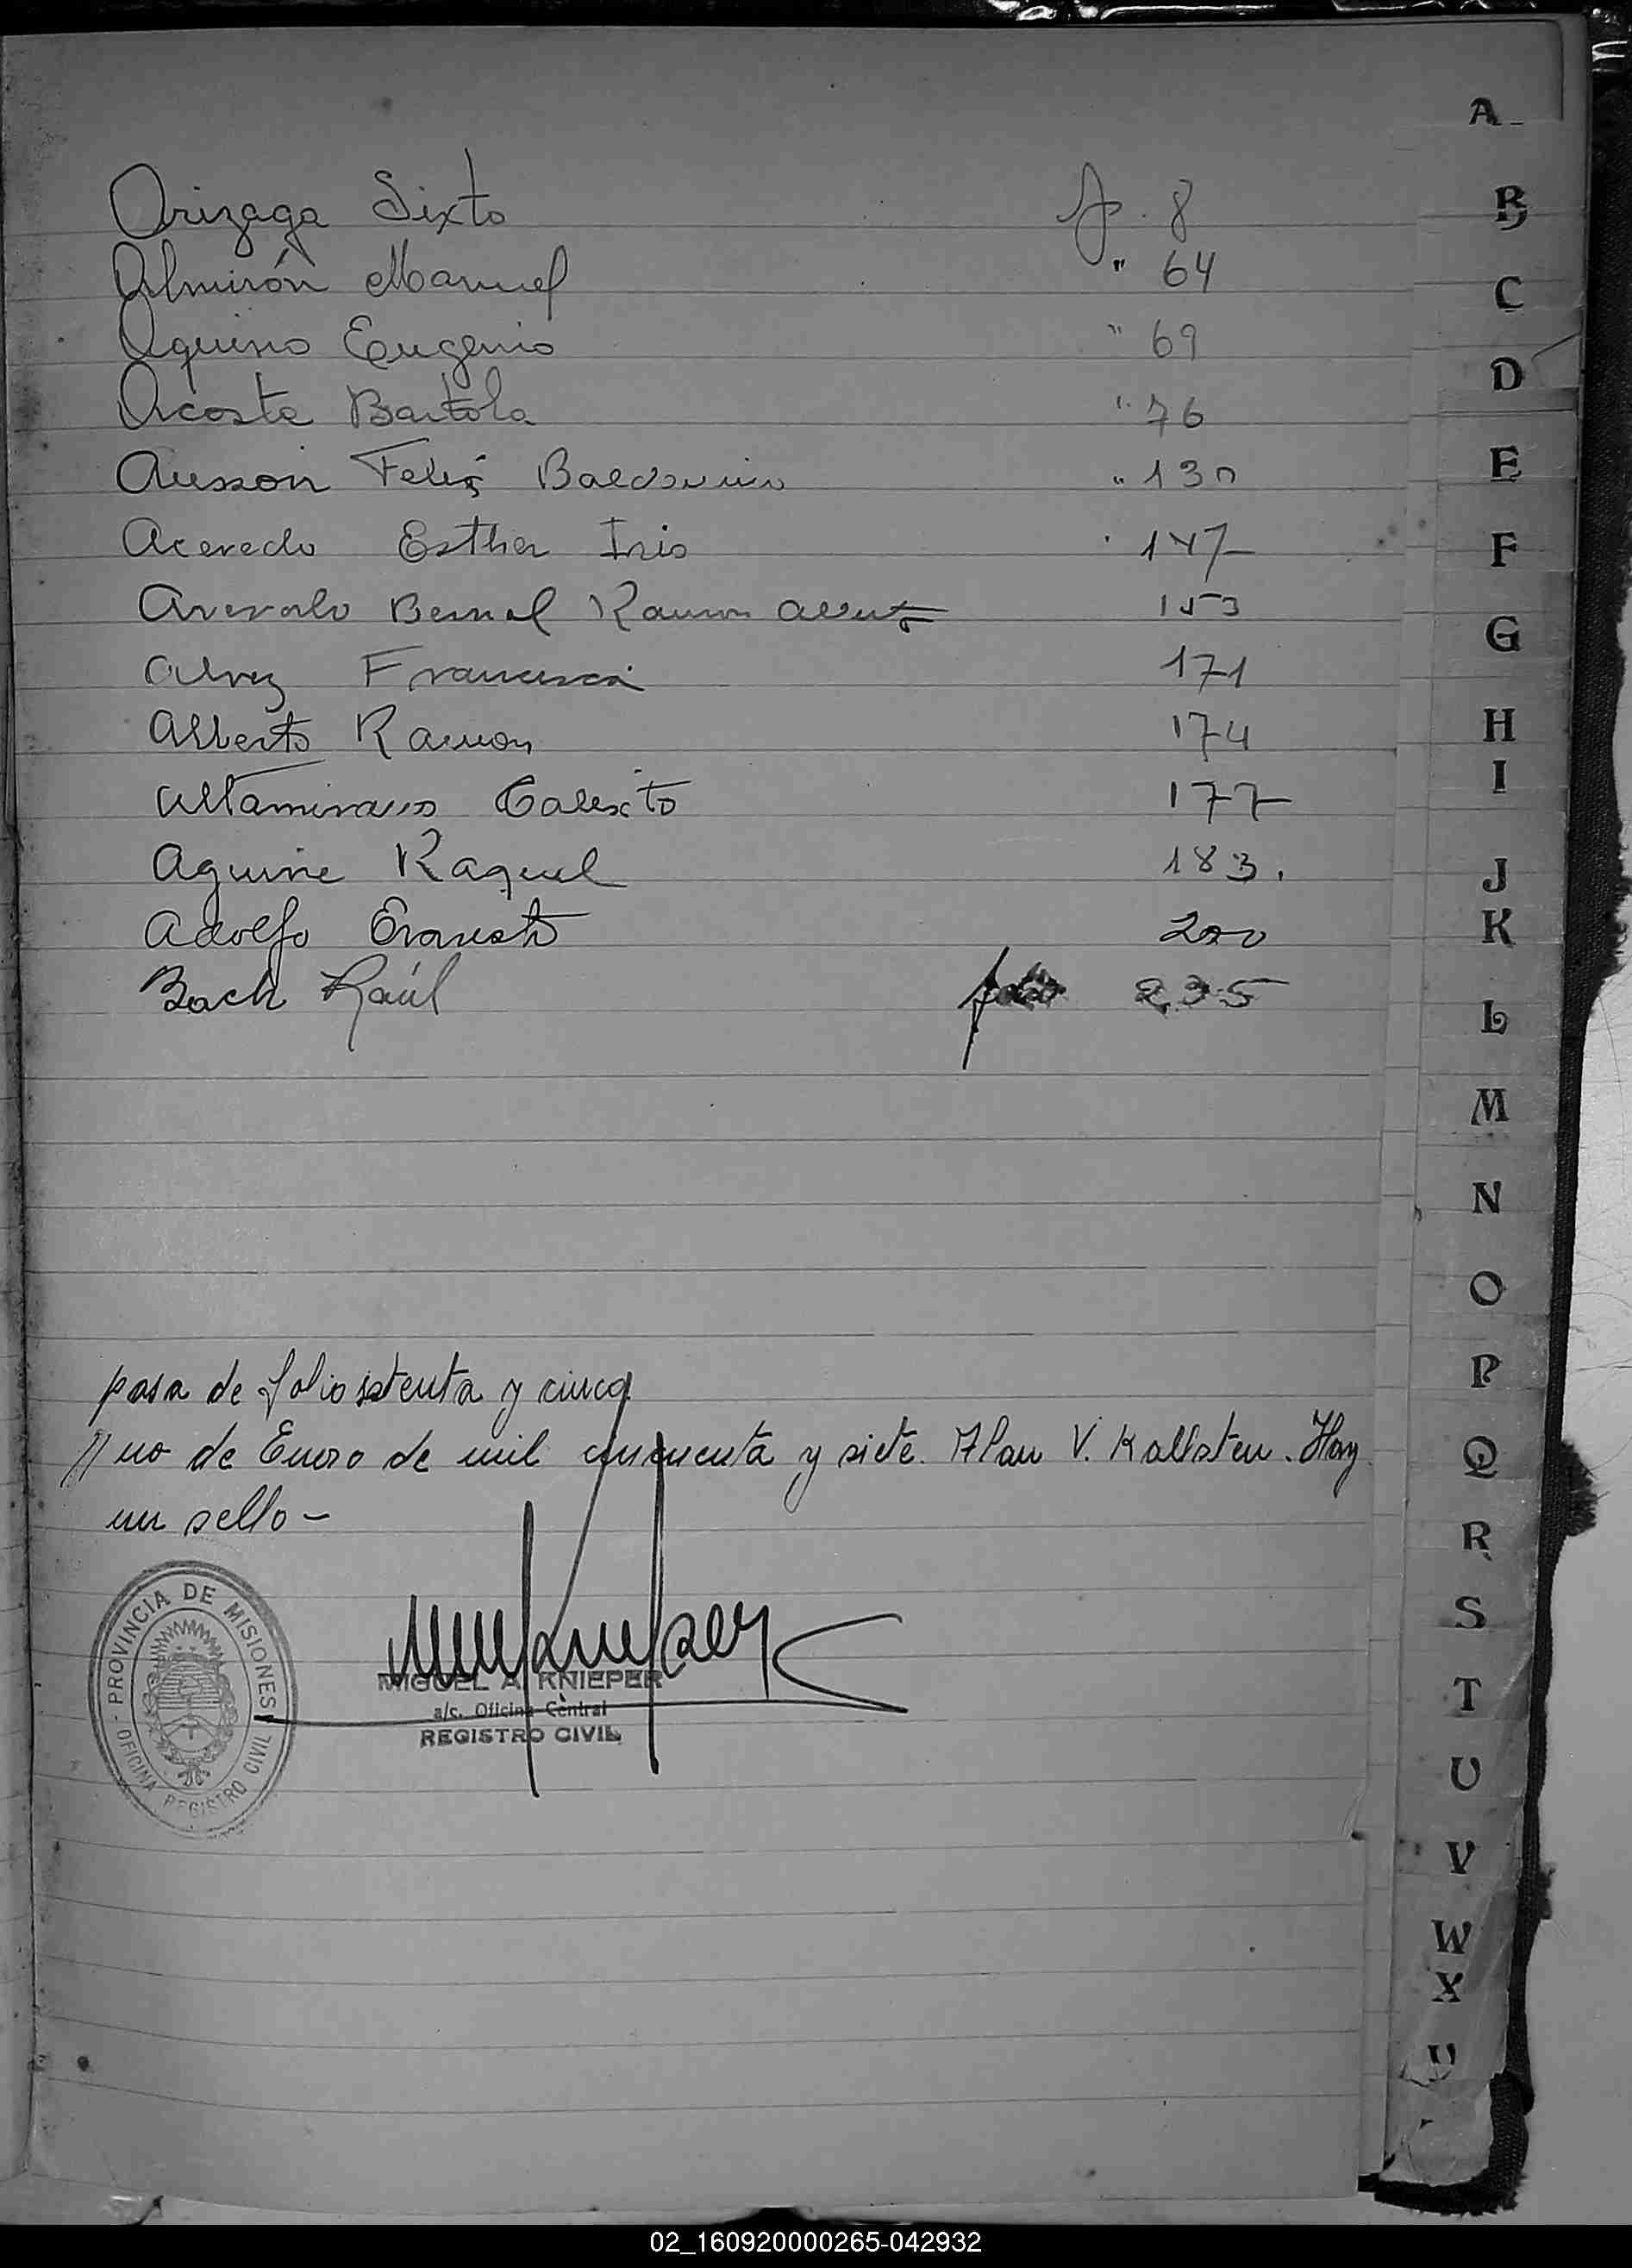 Arizaga Sixto f. 8
Almirón Manuel " 64
Aquino Eugenio " 69
Acosta Bartola " 76
Ausson Felix Baldovino " 130
Acevedo Esther Iris 147
Arevalo Bernal Ramon 153
Alvez Francisca 171
Alberto Ramon 174
Altamirano Calixto 177
Aguirre Raquel 183.
Adolfo Ernesto 200
Bach Raúl folio 235
pasa de folio setenta y cinco
// no de Enero de mil cincuenta y siete. Alan V. Kallsten. Hay
un sello -
PROVINCIA DE MISIONES
OFICINA REGISTRO CIVIL
MIGUEL A. KNIEPER
a/c. Oficina Central
REGISTRO CIVIL
A
B
C
D
E
F
G
H
I
J
K
L
M
N
O
P
Q
R
S
T
U
V
W
X
02_160920000265-042932